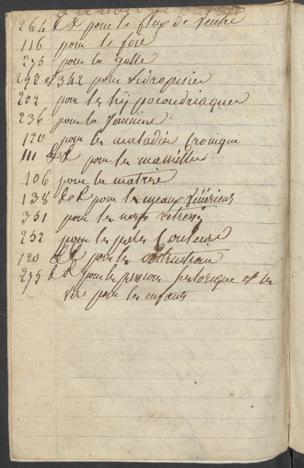 264 & R pour le flux de ventre
116 pour le foie
275 pour la gutte
298 et 342 pour lidropisier
202 pour les hippocondriaques
236 pour la jaunisse
120 pour les maladies croniques
111 & R pour les mamelles
106 pour la matrice
138 & R pour les meaux vénériens
351 pour les nerfs
232 pour les pales couleurs
120 & R pour les obstructions
275 & R pour les personnes et les
pour les enfans